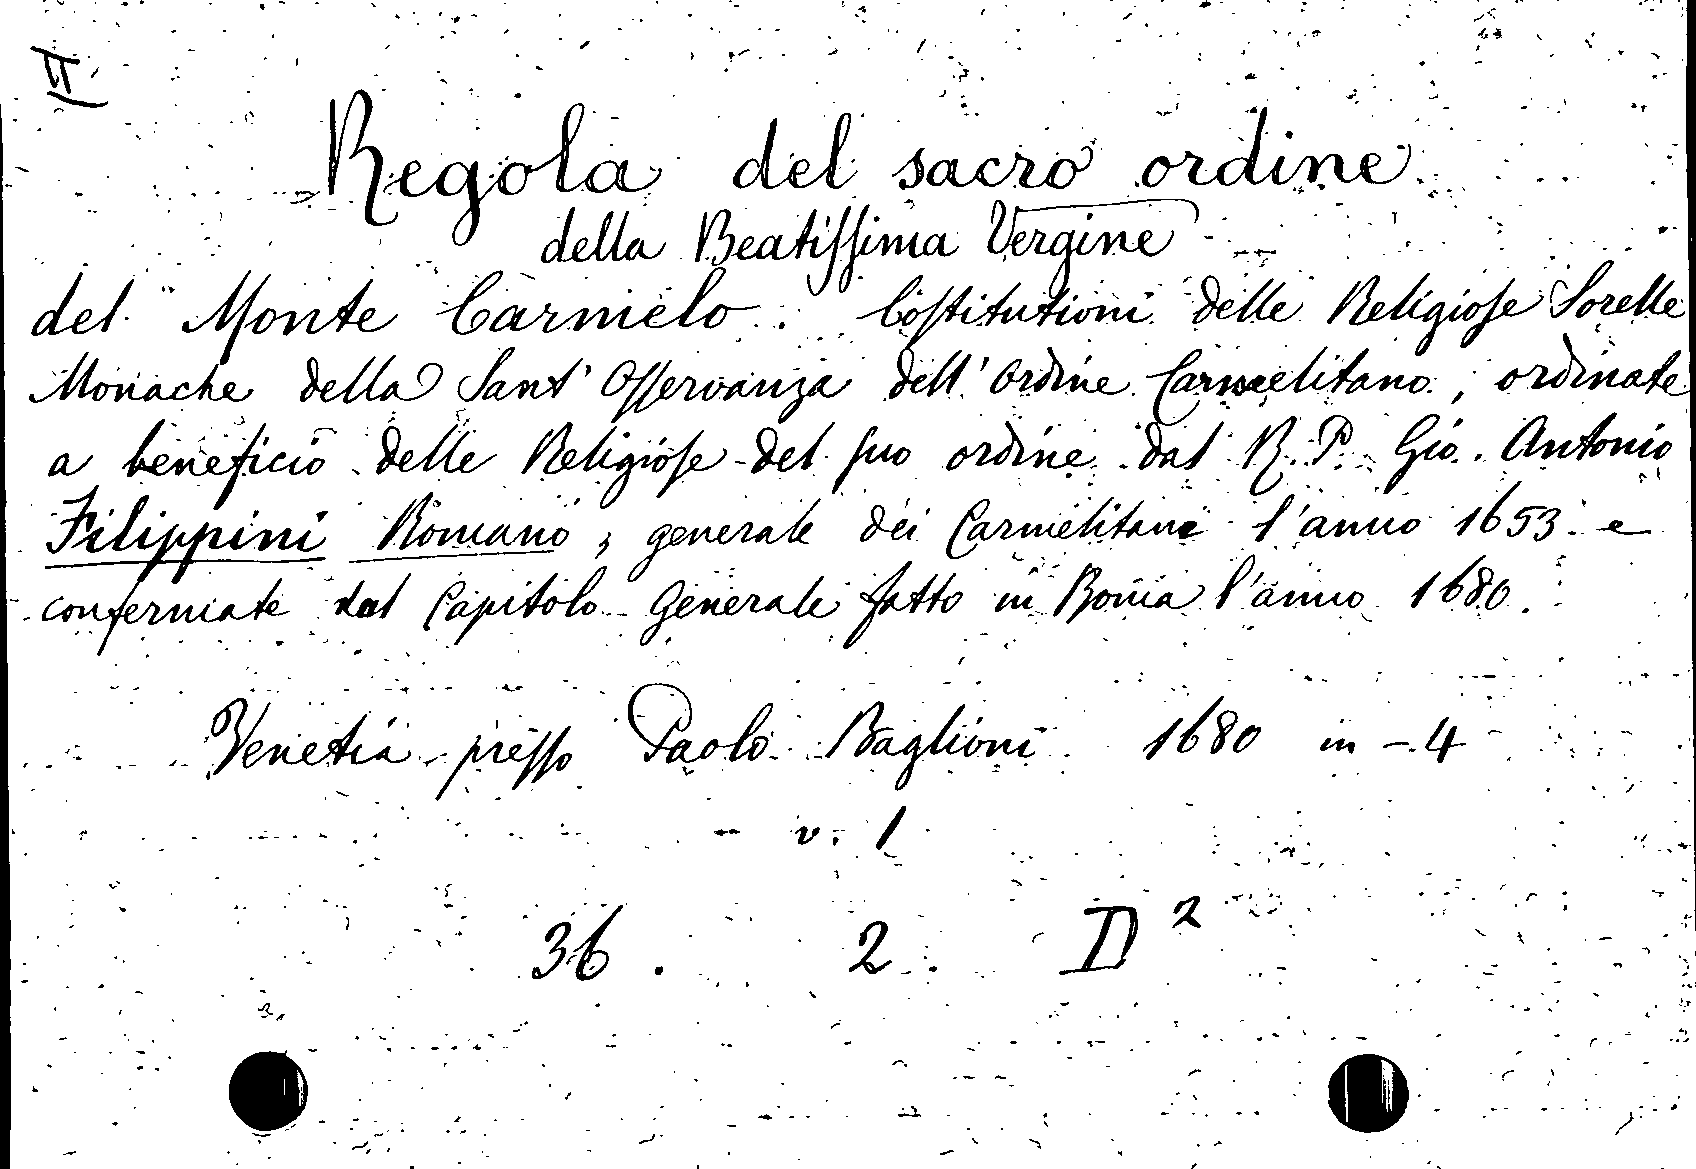 II
Regola del sacro ordine
della Beatiſſima Vergine
del Monte Carmelo. Coſtitutioni delle Religioſe Sorelle
Monache della Sant' Oſſervanza dell' Ordine Carmelitano, ordinate
a beneficio delle Religioſe del ſuo ordine dal R. P. Gio. Antonio
Filippini Romano, generale dei Carmelitani l'anno 1653 e
confermate dal Capitolo Generale fatto in Roma l'anno 1680.
Venetia preſſo Paolo Baglioni 1680 in-4
v. 1
36. 2. D²